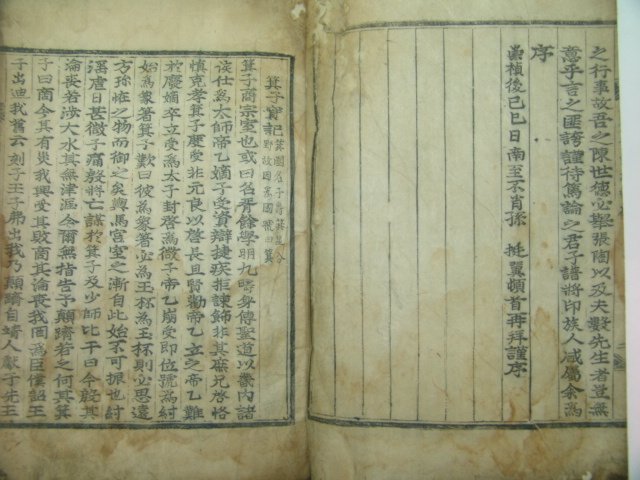 之行事故吾之陳世德必擧張陶以及夫數先生者豈無
意乎言之匪誇謹待篤論之君子譜將印族人咸屬余爲
序
崇禎後己巳日南至不肖孫 挺翼頓首再拜謹序
箕子實記
箕子商宗室也或曰名胥餘學明九疇身傳聖道以畿內諸
侯仕爲太師帝乙嫡子受資辯捷疾拒諫飾非其庶兄啓恪
愼克孝箕子度受非元良以啓長且賢勸帝乙立之帝乙難
於廢嫡卒立受爲太子封啓爲微子帝乙崩受卽位號爲紂
始爲象箸箕子歎曰彼爲象箸必爲玉杯爲玉杯則必思遠
方珎恠之物而御之矣輿馬宮室之漸自此始不可振也紂
淫虐日甚微子痛殷將亡謀於箕子及少師比干曰今殷其
淪喪若涉大水其無津涯今爾無指告予顚隮若之何其箕
子曰商今其有災我興受其敗商其淪喪我罔爲臣僕詔王
子出迪我舊云刻子王子弗出我乃顚隮自靖人獻于先王